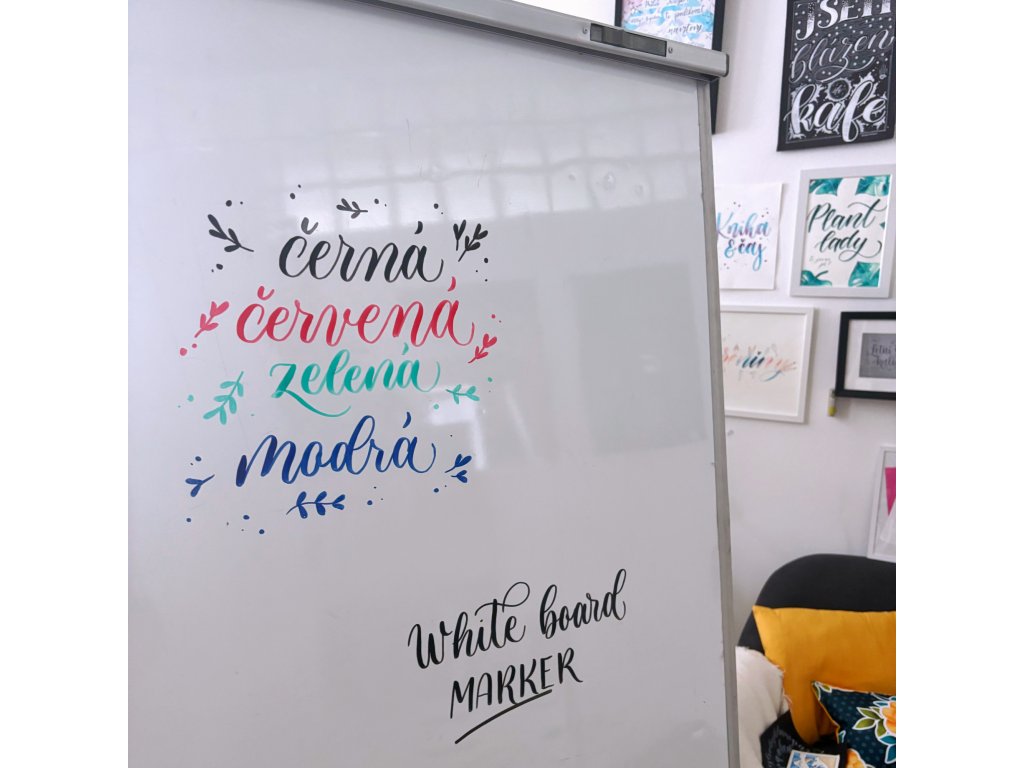 černá
červená
zelená
modrá
White board
MARKER
JSEM
blázen
kafe
Kniha
& čaj
Plant
lady